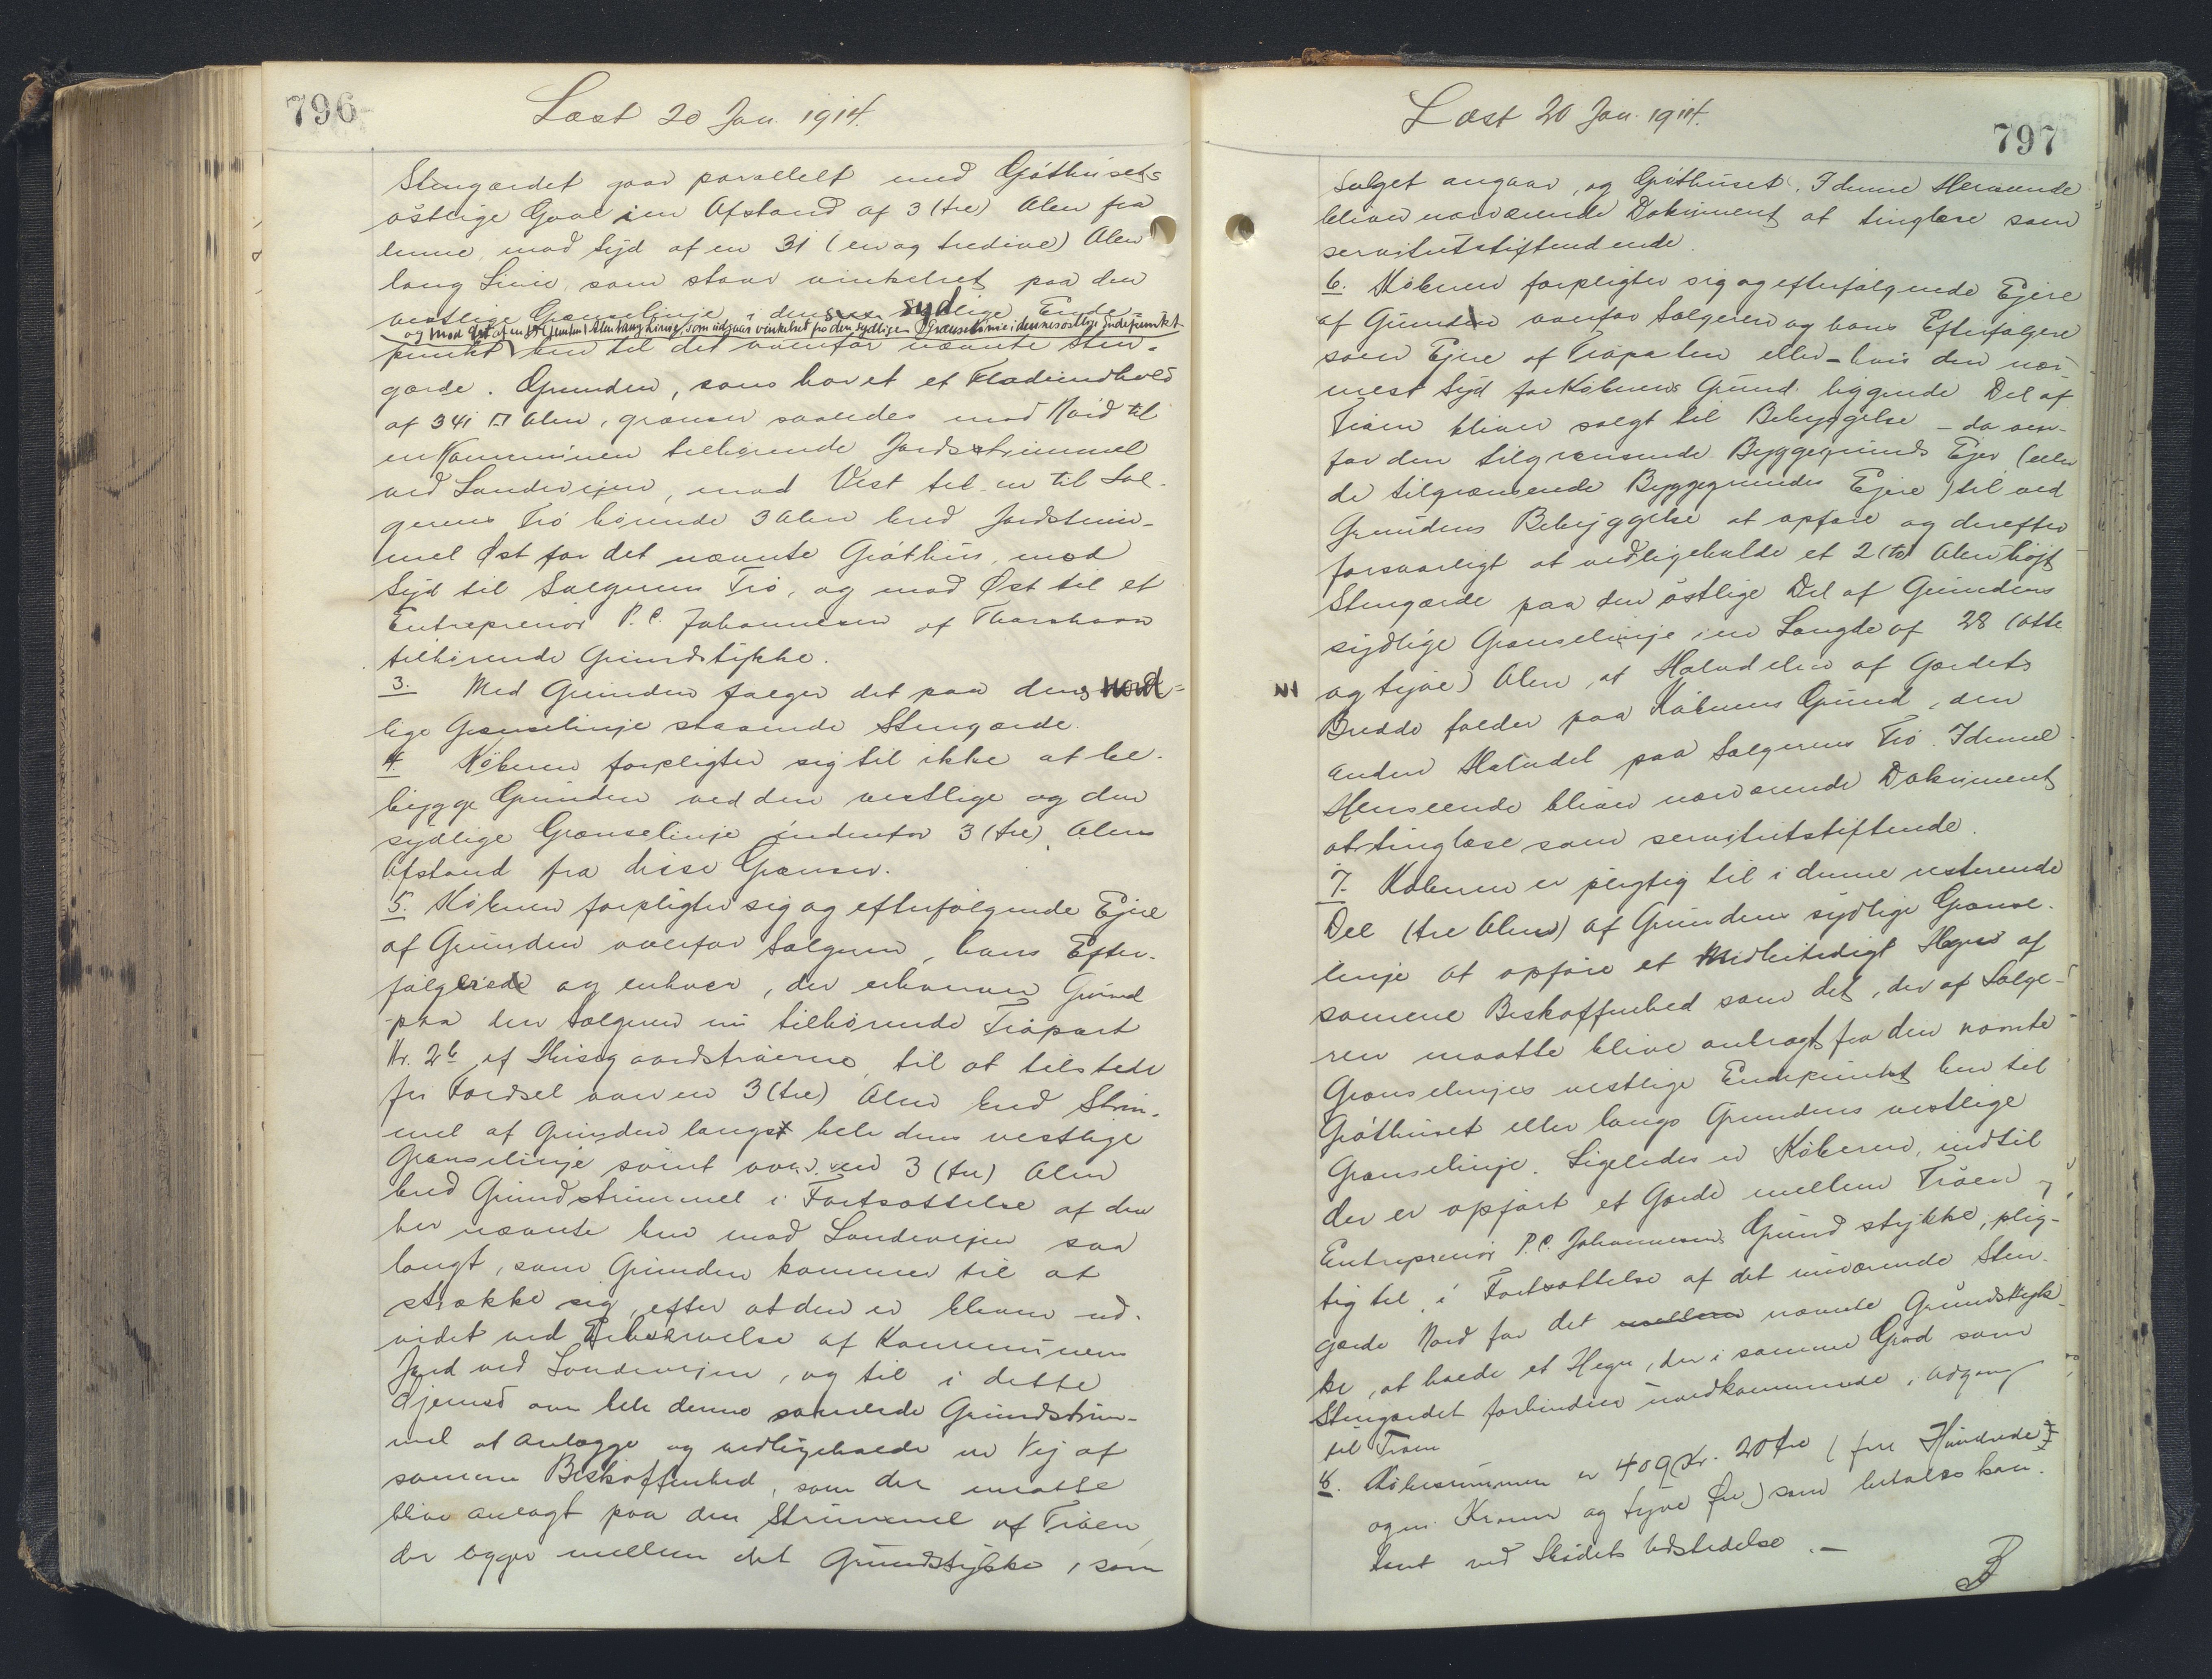 796
Læst 20 Jan. 1914.
Stengærdet gaar parallelt med Gróthúsets
østlige Gavl i en Afstand af 3 (tre) Alen fra
denne, mod Syd af en 31 (en og tredive) Alen
lang Linie, som staar vinkelret paa den
vestlige Grænselinje i dennes sydlige Ende-
og mod Øst af en (fjorten) Alen lang Linie, som udgaar vinkelret fra den sydlige Grænselinie i dennes østlige Endepunkt
punkt hen til det ovenfor nævnte Sten-
gærde. Grunden, som har et et Fladeindhold
af 341 □ Alen, grænser saaledes mod Nord til
en Kommunen tilhørende Jordstrimmel
ved Landevejen, mod Vest til en til Sæl-
gerens Trø hørende 3 Alen bred Jordstrim-
mel Øst for det nævnte Gróthús, mod
Syd til Sælgerens Trø, og mod Øst til et
Entreprenør P. C. Johannesen af Thorshavn
tilhørende Grundstykke.
3. Med Grunden følger det paa dens nord-
lige Grænselinje staaende Stengærde.
4. Køberen forpligter sig til ikke at be-
bygge Grunden ved den vestlige og den
sydlige Grænselinje indenfor 3 (tre) Alens
Afstand fra disse Grænser.
5. Køberen forpligter sig og efterfølgende Ejere
af Grunden overfor Sælgeren, hans Efter-
følgere og enhver, der erhverver Grund
paa den Sælgeren nu tilhørende Trøpart
Nr. 2b af Húsagaardstrøerne, til at tilstede
fri Færdsel over en 3 (tre) Alen bred Strim-
mel af Grunden langs hele dens vestlige
Grænselinje samt over en 3 (tre) Alen
bred Grundstrimmel i Fortsættelse af den
her nævnte hen mod Landevejen saa
langt, som Grunden kommer til at
strække sig, efter at den er bleven ud-
videt ved Erhvervelse af Kommunens
Jord ved Landevejen, og til i dette
Øjemed over hele denne samlede Grundstrim-
mel at anlægge og vedligeholde en Vej af
samme Beskaffenhed, som der maatte
blive anlagt paa den Strimmel af Trøen,
der ligger mellem det Grundstykke, som
Læst 20 Jan. 1914.
797
Salget angaar, og Gróthúset. I denne Henseende
bliver nærværende Dokument at tinglæse som
servitutstiftendende.
6. Køberen forpligter sig og efterfølgende Ejere
af Grunden overfor Sælgeren og hans Efterfølgere
som Ejere af Trøparten eller – hvis den nær-
mest Syd for Køberens Grund liggende Del af
Trøen bliver solgt til Bebyggelse – da over-
for den tilgrænsende Byggegrunds Ejer (eller
de tilgrænsende Byggegrundes Ejere) til ved
Grundens Bebyggelse at opføre og derefter
forsvarligt at vedligeholde et 2 (to) Alen højt
Stengærde paa den østlige Del af Grundens
sydlige Grænselinje i en Længde af 28 (otte
og tyve) Alen, at Halvdelen af Gærdets
Bredde falder paa Køberens Grund, den
anden Halvdel paa Sælgerens Trø. I denne
Henseende bliver nærværende Dokument
at tinglæse som servitutstiftende.
7. Køberen er pligtig til i denne resterende
Del (tre Alen) af Grundens sydlige Grænse-
linje at opføre et midlertidigt Hegn af
samme Beskaffenhed som det, der af Sælge-
ren maatte blive anbragt fra den nævnte
Grænselinjes vestlige Endepunkt hen til
Gróthúset eller langs Grundens vestlige
Grænselinje. Ligeledes er Køberen, indtil
der er opført et Gærde mellem Trøen og
Entreprenør P. C. Johannesens Grundstykke, plig-
tig til, i Fortsættelse af det nuværende Sten-
gærde Nord for det mellem nævnte Grundstyk-
ke, at holde et Hegn, der i samme Grad som
Stengærdet forhindrer uvedkommende, Adgang
til Trøen
8. Købesummen er 409 Kr. 20 Øre (fire Hundrede
og ni Kroner og tyve Øre) som betales kon-
tant ved Skødets Udstedelse. –